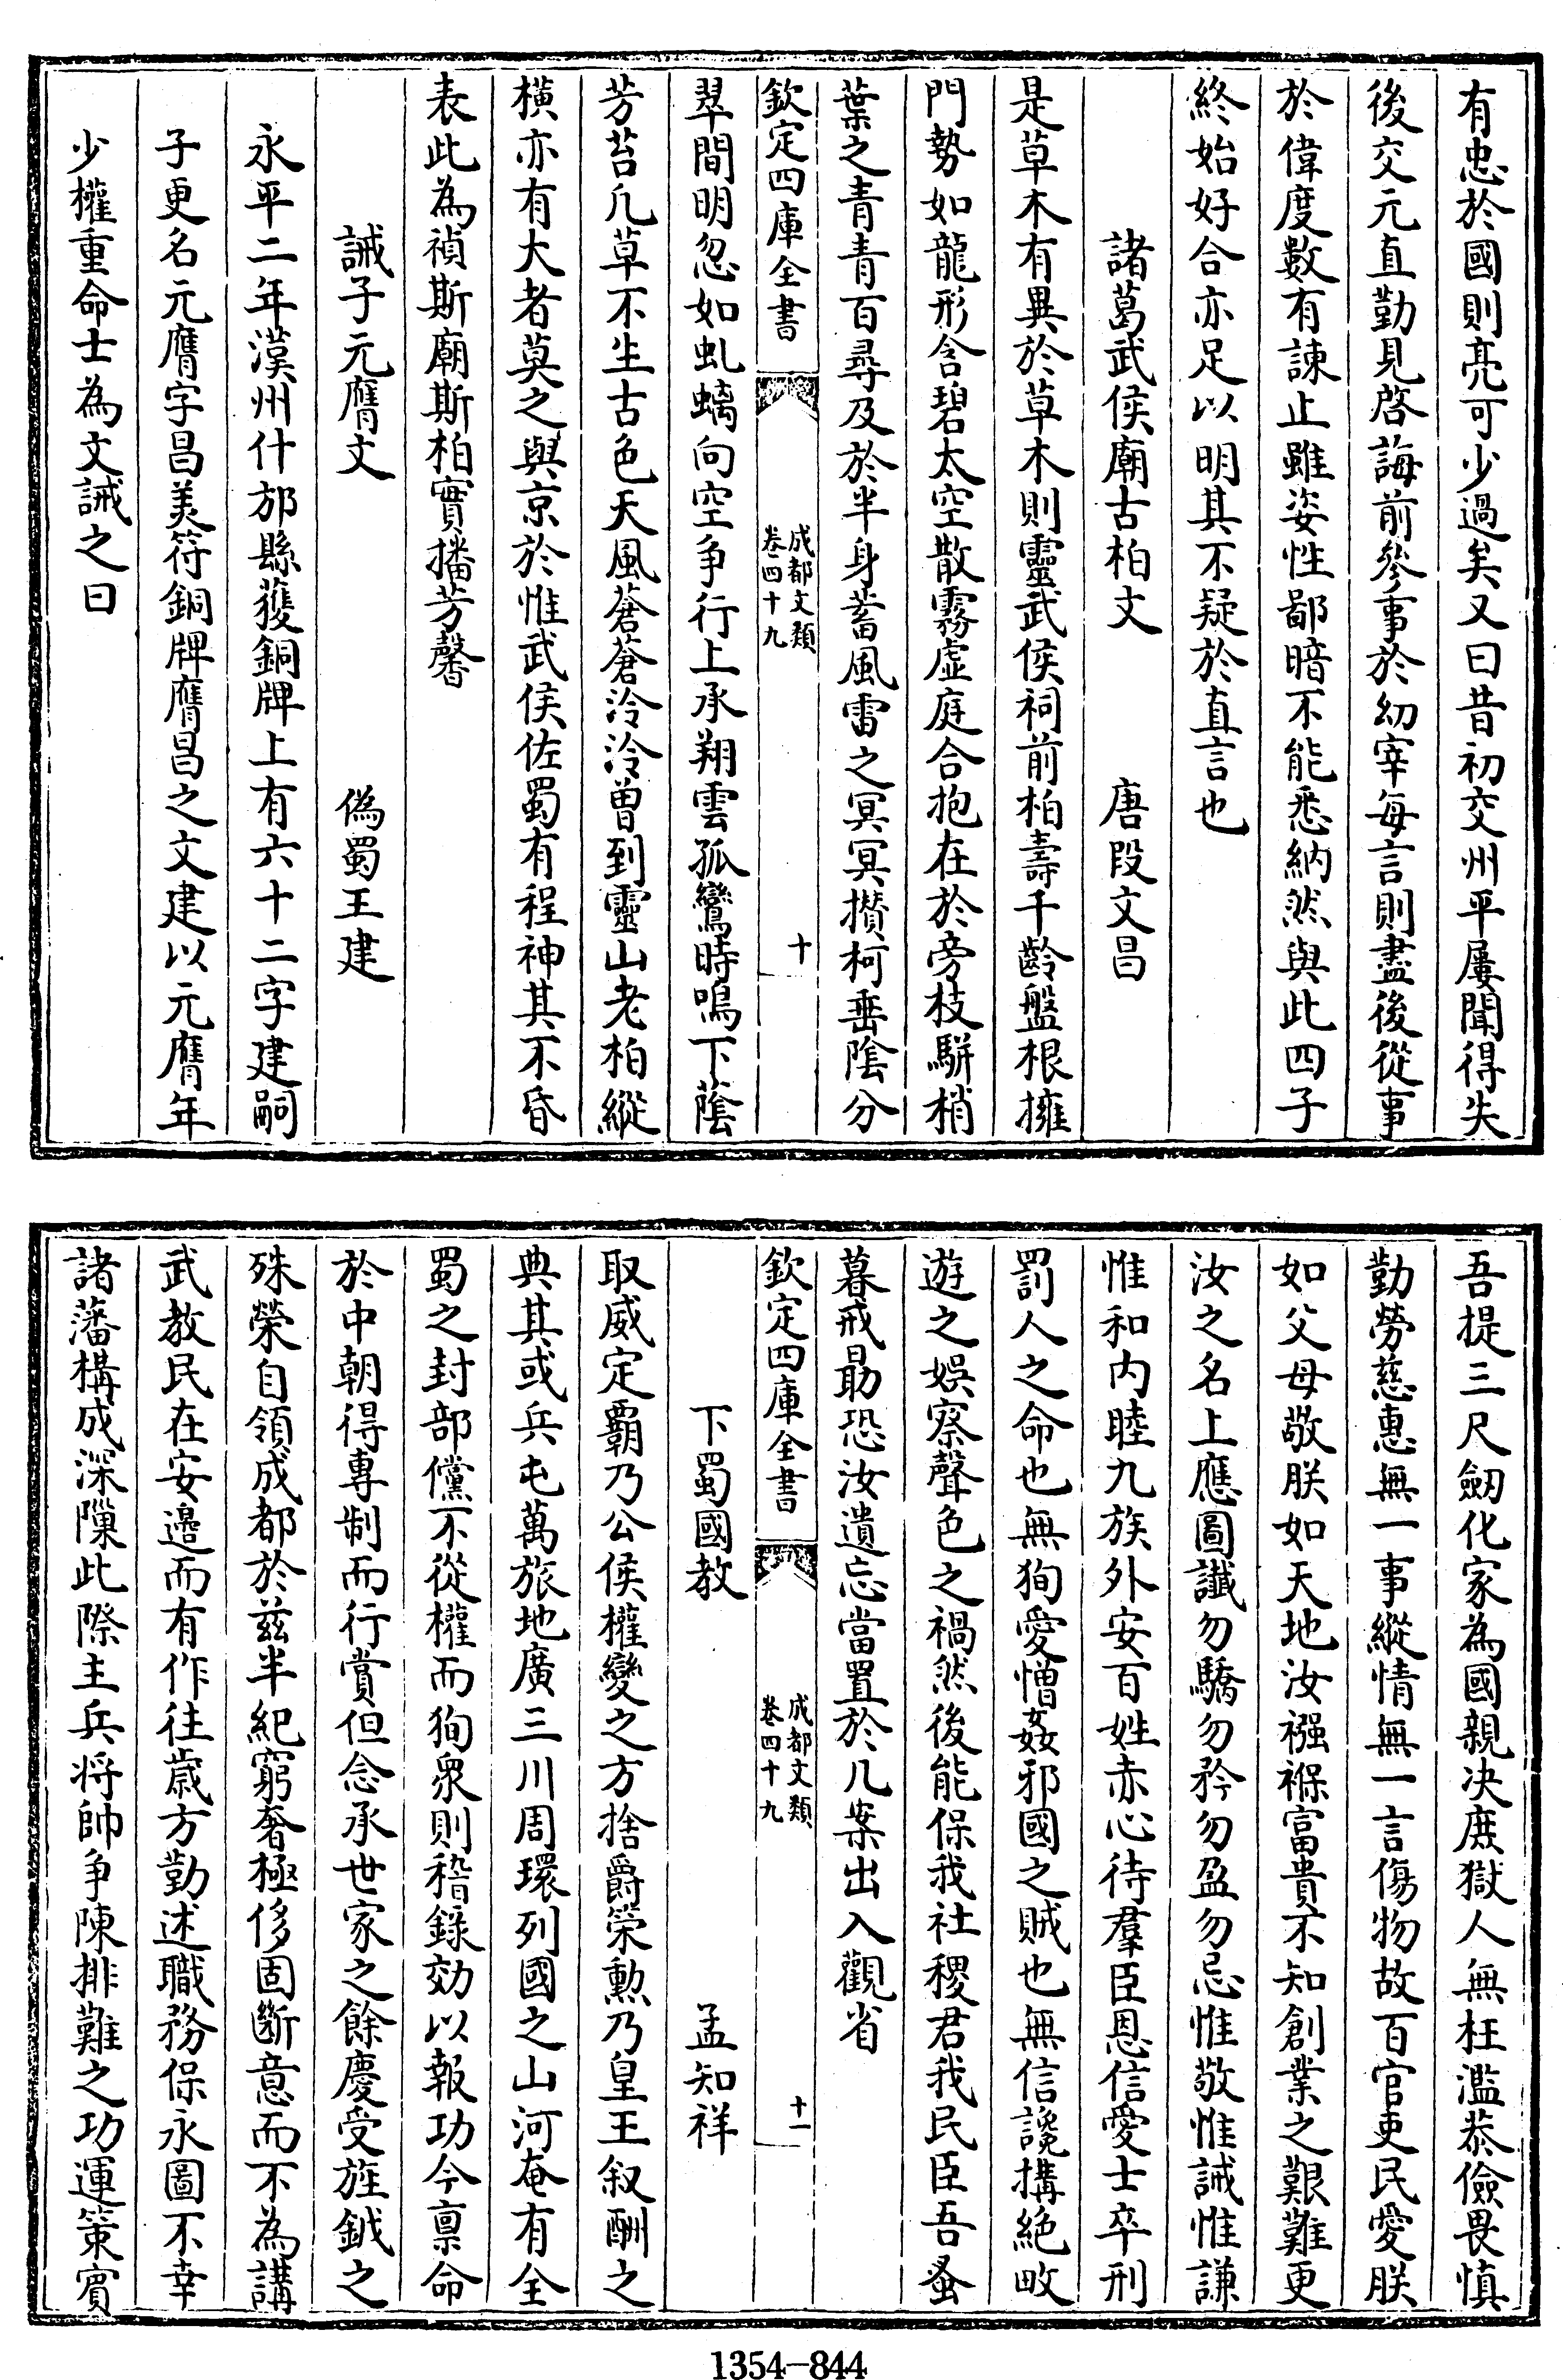 有忠於國則亮可少過矣又曰昔初交州平屢聞得失
後交元直勤見啓誨前參事於幼宰每言則盡後從事
於偉度數有諫止雖姿性鄙暗不能悉納然與此四子
終始好合亦足以明其不疑於直言也
諸葛武侯廟古柏文　唐段文昌
是草木有異於草木則靈武侯祠前柏壽千齡盤根擁
門勢如龍形含碧太空散霧虛庭合抱在於旁枝駢梢
葉之青青百尋及於半身蓄風雷之冥冥攢柯垂陰分
欽定四庫全書　成都文類卷四十九　十
翠間明忽如虬螭向空争行上承翔雲孤鸞時鳴下蔭
芳苔凡草不生古色天風蒼蒼泠泠曽到靈山老柏縱
横亦有大者莫之與京於惟武侯佐蜀有程神其不昏
表此為禎斯廟斯柏實播芳馨
誡子元膺文　偽蜀王建
永平二年漢州什邡縣獲銅牌上有六十二字建嗣
子更名元膺字昌美符銅牌膺昌之文建以元膺年
少權重命士為文誡之曰
吾提三尺劒化家為國親决庶獄人無枉濫恭儉畏慎
勤勞慈惠無一事縱情無一言傷物故百官吏民愛朕
如父母敬朕如天地汝襁褓富貴不知創業之艱難更
汝之名上應圖讖勿驕勿矜勿盈勿忌惟敬惟誡惟謙
惟和内睦九族外安百姓赤心待羣臣恩信愛士卒刑
罰人之命也無狥愛憎姦邪國之賊也無信讒搆絶畋
遊之娛察聲色之禍然後能保我社稷君我民臣吾蚤
暮戒勗恐汝遺忘當置於几案出入觀省
欽定四庫全書　成都文類卷四十九　十一
下蜀國教　孟知祥
取威定覇乃公侯權變之方捨爵榮勲乃皇王叙酬之
典其或兵屯萬旅地廣三川周環列國之山河奄有全
蜀之封部儻不從權而狥衆則稽錄効以報功今禀命
於中朝得專制而行賞但念承世家之餘慶受旌鉞之
殊榮自領成都於兹半紀窮奢極侈固斷意而不為講
武教民在安邉而有作往歲方勤述職務保永圖不幸
諸藩構成深隟此際主兵将帥争陳排難之功運策賓
1354-844